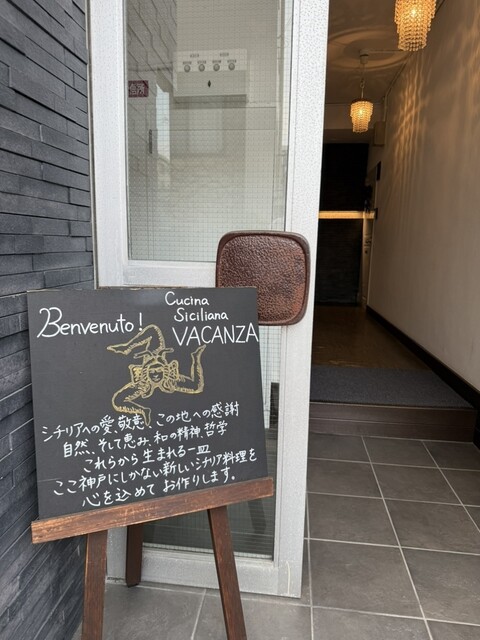 Benvenuto!
Cucina
Siciliana
VACANZA
シチリアへの愛、敬意、この地への感謝
自然、そして恵み、和の精神、哲学
これから生まれる一皿
ここ神戸にしかない新しいシチリア料理を
心を込めてお作りします。